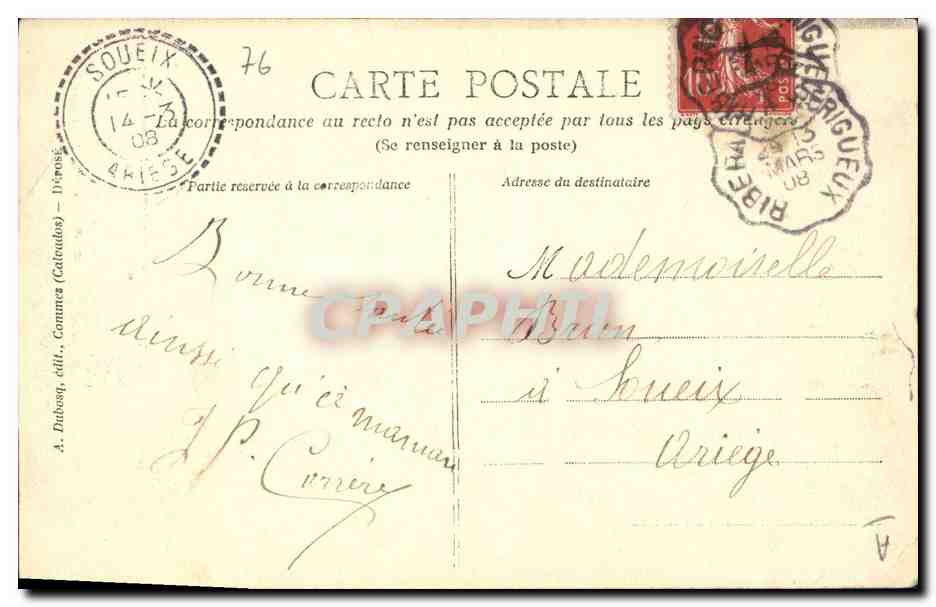 SOUEIX
14 -3
08
ARIEGE
76
CARTE POSTALE
La correspondance au recto n'est pas acceptée par tous les pays étrangers
(Se renseigner à la poste)
Partie réservée à la correspondance
Adresse du destinataire
RIBERAC
PERIGUEUX
MARS
08
Bonne santé
ainsi
qu'à maman
P. Corrière
Mademoiselle
Brun
à Soueix
Ariège
A. Dubosq, édit., Commes (Calvados) — Déposé
CPAPHIL
A